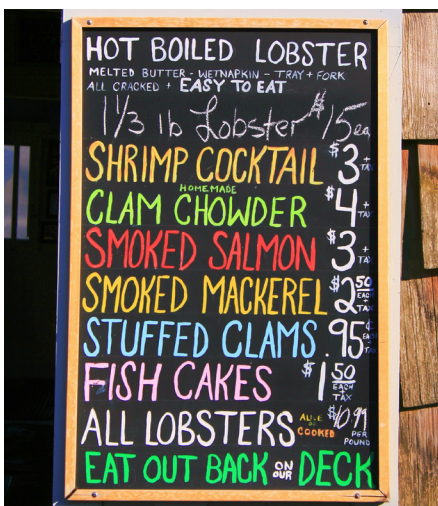 HOT BOILED LOBSTER
MELTED BUTTER - WETNAPKIN - TRAY + FORK
ALL CRACKED + EASY TO EAT
1 1/3 lb Lobster $15ea
SHRIMP COCKTAIL $3 + TAX
HOMEMADE
CLAM CHOWDER $4 + TAX
SMOKED SALMON $3 + TAX
SMOKED MACKEREL $2 50 EACH + TAX
STUFFED CLAMS .95¢ EA + TAX
FISH CAKES $1 50 EACH + TAX
ALL LOBSTERS ALIVE or COOKED $10.99 PER POUND
EAT OUT BACK ON OUR DECK